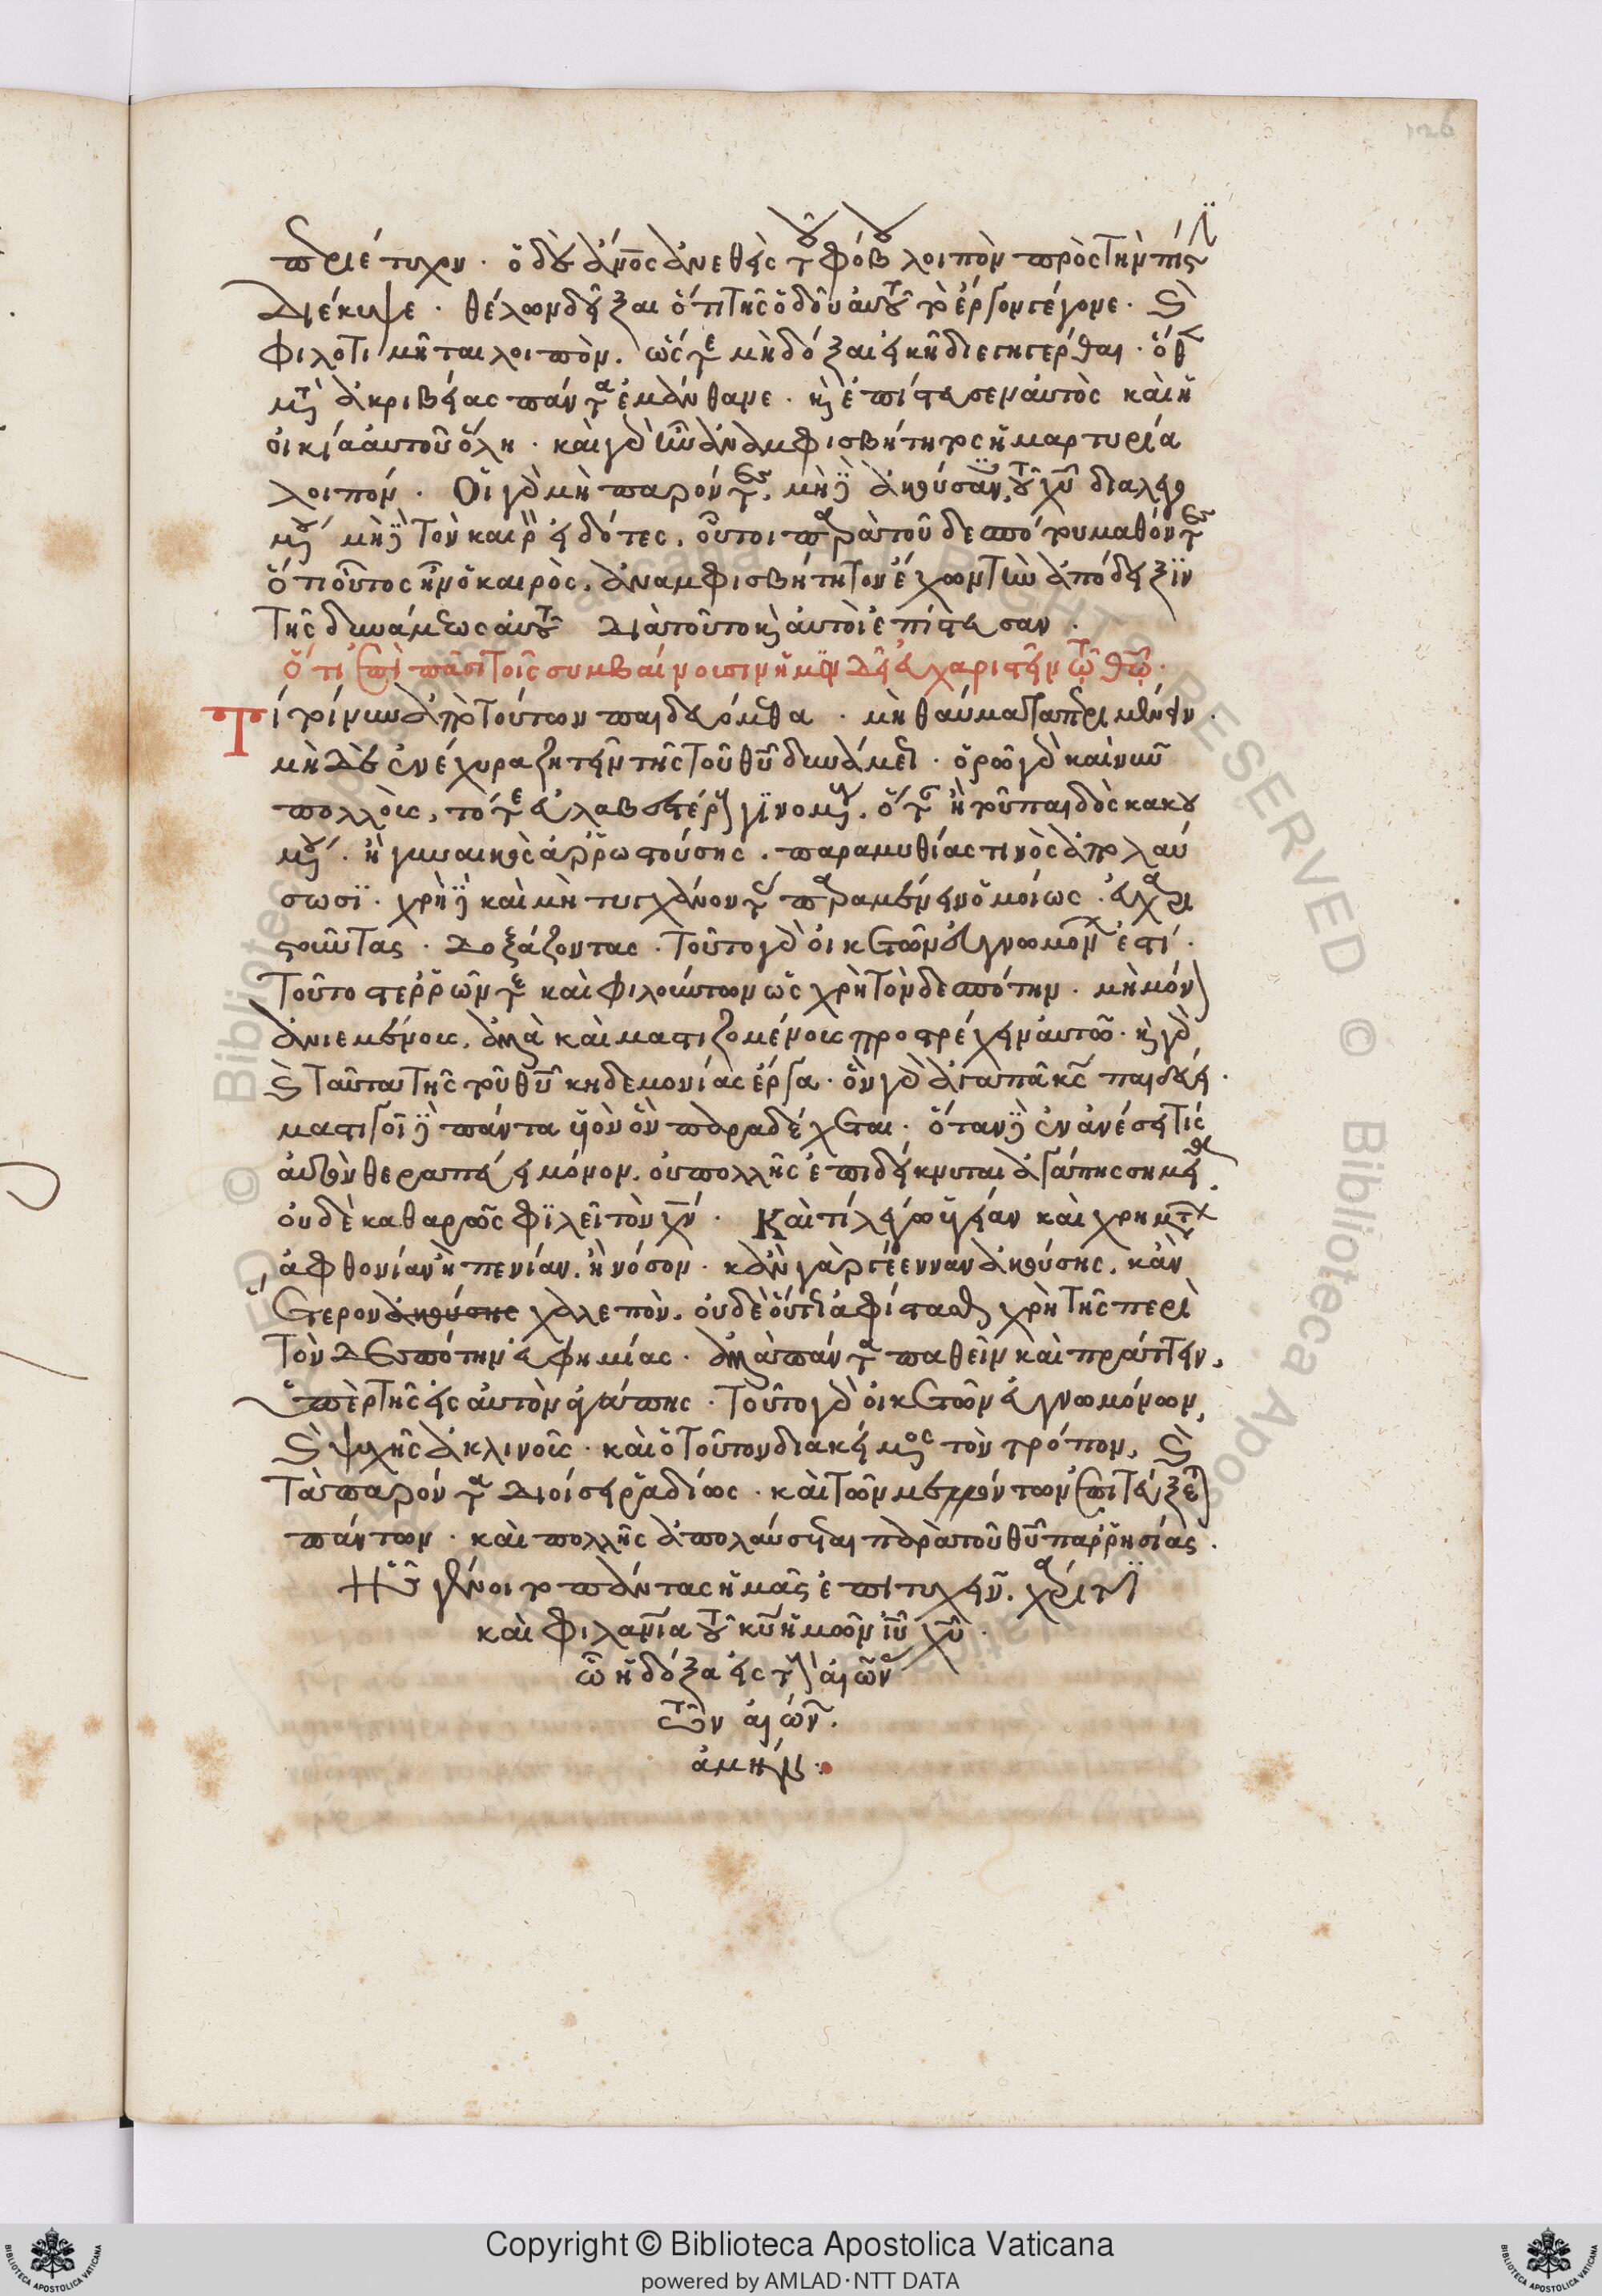 126
περιέτυχον · ὁ δὲ ἄνος ἀνεθεὶς τοῦ φόβου λοιπὸν πρὸς τὴν πίστιν
διέκυψε · θέλων δεῖξαι ὅτι τῆς ὁδοῦ αὐτοῦ τὸ ἔργον γέγονε · καὶ
φιλοτιμεῖται λοιπὸν · ὥστε μὴ δόξαι εἰκῆ διεγηγέρθαι · ὅθεν
μετὰ ἀκριβείας πάντα ἐμάνθανε · καὶ ἐπίστευσεν αὐτὸς καὶ ἡ
οἰκία αὐτοῦ ὅλη · καὶ γὰρ ἦν ἀναμφισβήτητος ἡ μαρτυρία
λοιπόν · Οἱ γὰρ μὴ παρόντες, μὴ δὲ ἀκούσαντες τοῦ χυ διαλεγο
μένου μὴ δὲ τὸν καιρὸν εἰδότες, οὗτοι παρὰ τοῦ δεσπότου μαθόντες
ὅτι οὗτος ἦν ὁ καιρὸς, ἀναμφισβήτητον ἔχων τὴν ἀπόδειξϊν
τῆς δυνάμεως αὐτοῦ διὰ τοῦτο καὶ αὐτοὶ ἐπίστευσαν ·
ὅτι ἐπὶ πᾶσι τοῖς συμβαίνουσιν ἡμῖν δεῖ εὐχαριστεῖν τῷ θῷ ·
Τί τοίνυν ἀπὸ τούτων παιδευόμεθα · μὴ θαύματα περιμένειν ·
μὴ δὲ ἐνέχυρα ζητεῖν τῆς τοῦ θυ δυνάμεως · ὁρῶ γὰρ καὶ νῦν
πολλοὺς, τότε εὐλαβεστέρους γϊνομένους, ὅταν ἢ τοῦ παιδὸς κακου
μένου · ἢ γυναικὸς ἀρρωστούσης · παραμυθίας τινὸς ἀπολαύ
σωσϊ · χρὴ δὲ καὶ μὴ τυγχάνοντας παραμένειν ὁμοίως · εὐχαρι
στοῦντας · δοξάζοντας · τοῦτο γὰρ οἰκετῶν εὐγνωμόνων ἐστί ·
τοῦτο στερρῶν τε καὶ φιλούντων ὡς χρὴ τὸν δεσπότην · μὴ μόνον
ἀνιεμένοις, ἀλλὰ καὶ μαστιζομένοις προστρέχειν αὐτῶ · καὶ γὰρ
καὶ ταῦτα τῆς τοῦ θυ κηδεμονίας ἔργα · ὃν γὰρ ἀγαπᾶ κς παιδεύει ·
μαστιγοῖ δὲ πάντα υἱὸν ὃν παραδέχεται · ὅταν δὲ ἐν ἀνέσει τίς
αὐτὸν θεραπεύει μόνον, οὐ πολλῆς ἐπιδείκνυται ἀγάπης σημεῖον
οὐδὲ καθαρῶς φϊλεῖ τὸν χν · Καὶ τί λέγω ὑγείαν καὶ χρημάτων
ἀφθονίαν ἢ πενίαν, ἢ νόσον · κἂν γὰρ γέενναν ἀκούσης, κἂν
ἕτερον ἀκούσης χαλεπὸν, οὐδὲ οὕτως ἀφίστασθαι χρὴ τῆς περὶ
τὸν δεσπότην εὐφημίας · ἀλλὰ πάντα παθεῖν καὶ πράττειν,
ὑπὲρ τῆς εἰς αὐτὸν ἀγάπης · τοῦτο γὰρ οἰκετῶν εὐγνωμόνων,
καὶ ψυχῆς ἀκλινοῦς · καὶ ὁ τοῦτον διακείμενος τὸν τρόπον, καὶ
τὰ παρόντα διοίσει ῥαδίως · καὶ τῶν μελλόντων ἐπιτεύξεται
πάντων · καὶ πολλῆς ἀπολαύσεται παρὰ τοῦ θυ παρρησίας ·
Ης γένοιτο πάντας ἡμᾶς ἐπιτυχεῖν, χάριτϊ
καὶ φιλανία τοῦ κυ ἡμῶν ιυ χυ ·
ᾧ ἡ δόξα εἰς τοὺς αἰῶνας
τῶν αἰώνων.
ἀμήν ·
Copyright © Biblioteca Apostolica Vaticana
powered by AMLAD·NTT DATA